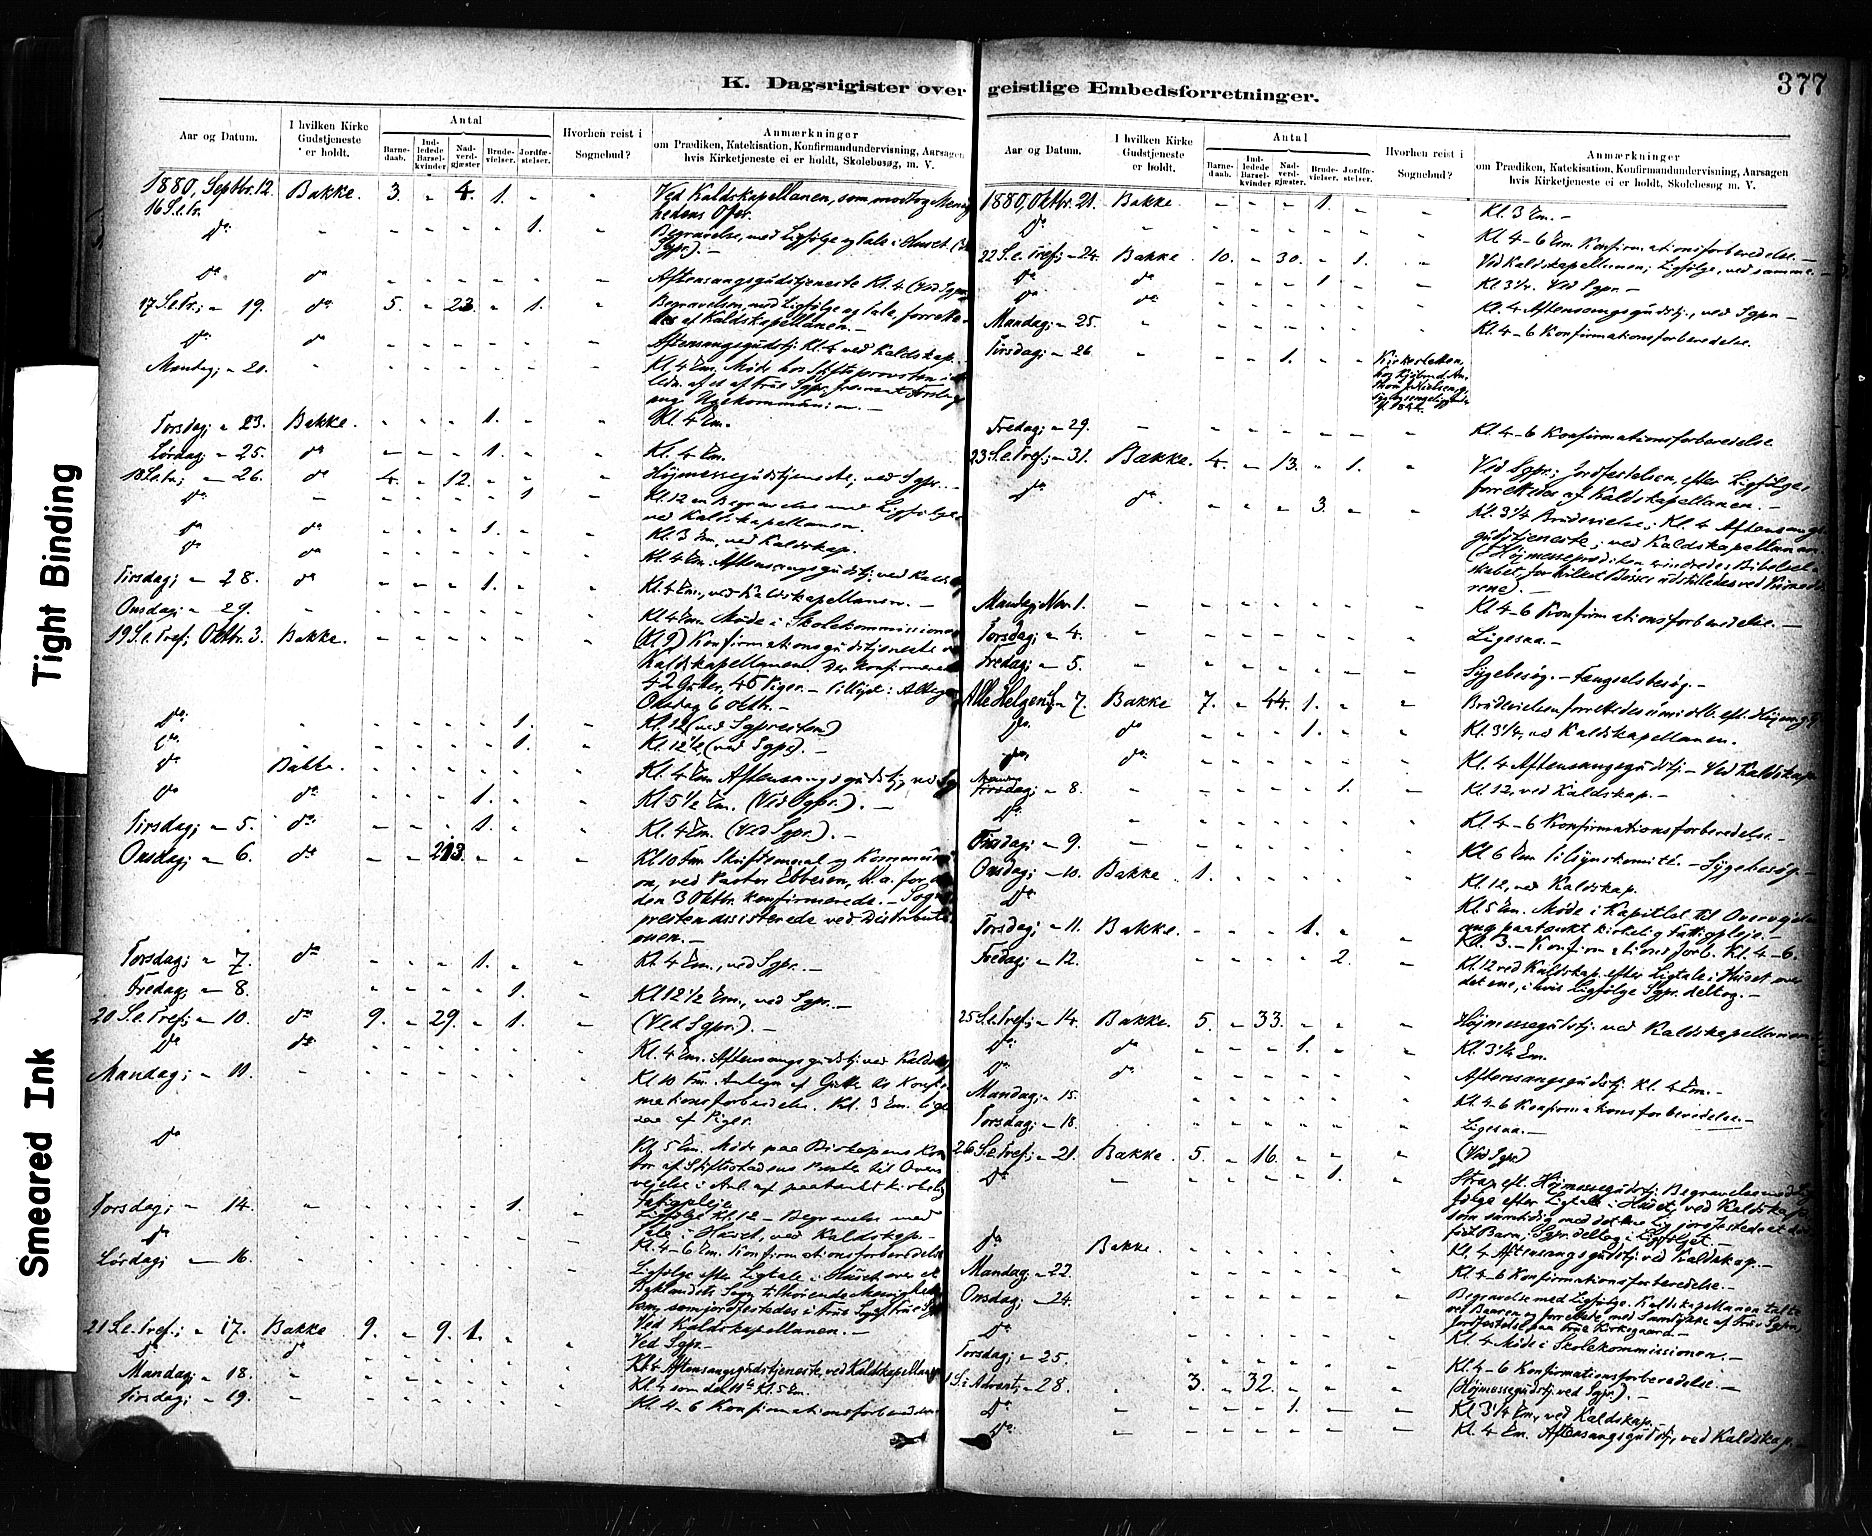 Tight Binding
Smeared Ink
377
K. Dagsrigister over geistlige Embedsforretninger.
Aar og Datum. I hvilken Kirke Gudstjeneste er holdt. Antal Barnedaab. Indledede Barselkvinder Nadverdgjæster. Brudevielser. Jordfæstelser. Hvorhen reist i Sognebud? Anmærkninger om Prædiken, Katekisation, Konfirmandundervisning, Aarsagen hvis Kirketjeneste ei er holdt, Skolebesøg, m. V.
1880, Septbr. 12. Bakke. 3. " 4. 1. " " Ved Kaldskapellanen, som modtog Menig-
16 S.e.Tr.
hedens Offer.
Do " " " " " 1. " Begravelse, med Ligfølge og Tale i Huset
Sgpr.). —
Do do " " " " " " Aftensangsgudstjeneste Kl. 4 (Ved Sgpr.
17 S.e.Tr.; " 19. do 5. " 23. " 1. " Begravelsen, med Ligfølge og Tale, forrette-
des af Kaldskapellanen. —
Do do " " " " " " Aftensangsgudstj. Kl. 4 ved Kaldskap.
Mandag; " 20. " " " " " " " Kl. 4 Em. Møde hos Stiftsprovsten i
Torsdag; " 23. Bakke. " " " 1. " " Kl. 4 Em.
Lørdag; " 25. do " " " 1. " " Kl. 4 Em.
18 S.e.Tr.; " 26. do 4. " 12. " " " Højmessegudstjeneste, ved Sgpr. —
Do " " " " " 1 " Kl. 12 en Begravelse med Ligfølge
ved Kaldskapellanen.
Do do " " " 1. " " Kl. 3 Em. ved Kaldskap.
Do do " " " " " " Kl. 4 Em. Aftensangsgudstj. ved
Tirsdag; " 28. do " " " 1. " " Kl. 4 Em., ved Kaldskapellanen. —
Onsdag; " 29. " " " " " " " Kl. 4 Em. Møde i Skolekommissionen
19 S.e.Tref.; Oktbr. 3. Bakke. " " " " " " (Kl. 9) Konfirmationsgudstjeneste
Kaldskapellanen. De Konfirmerede
42 Gutter, 45 Piger. —
Onsdag 6 Oktbr. —
Do " " " " " 1. " Kl. 12 (ved Sgpresten)
Do " " " " " 1. " Kl. 12½ (ved Sgpr.). —
Do Bakke. " " " " " " Kl. 4 Em. Aftensangsgudstj. ved
Do do " " " 1. " " Kl. 5½ Em. (Ved Sgpr.). —
Tirsdag; " 5. do " " " 1. " " Kl. 4 Em. (Ved Sgpr.). —
Onsdag; " 6. do " " 213. " " " Kl. 10 Fm. Skriftemaal og Kommuni-
on, ved Pastor Ebbesen, bl. a. for
den 3 Oktbr. Konfirmerede. — Sogne-
presten assisterede ved Distributi-
onen. —
Torsdag; " 7. do " " " 1. " " Kl. 4 Em., ved Sgpr. —
Fredag; " 8. " " " " 1. " Kl. 12½ Em., ved Sgpr. —
20 S.e.Tref.; " 10. do 9. " 29. " 1. " (Ved Sgpr.). —
Do do " " " " " " Kl. 4 Em. Aftensangsgudstj. ved Kaldskap.
Mandag; " 11. " " " " " " " Kl. 10 Fm. Antegn. af Gutter til Konfir-
mationsforberedelse. Kl. 3 Em. lige-
saa af Piger.
Do Kl. 5 Em. Møde paa Biskopens Kon-
tor af Stiftsstadens Prester til Over-
vejelse i Anl. af paatænkt kirkelig
Fattigpleje
Torsdag; " 14. " " " " " 1. " Ligfølge Kl. 12 — Begravelse med
Tale i Huset, ved Kaldskap. —
Do " " " " " " " Kl. 4—6 Em. Konfirmationsforberedelse
Lørdag; " 16. " " " " " " " Ligfølge efter Ligtale i Huset over et
21 S.e.Tref.; " 17. Bakke 9. " 9. 1. " Ved Kaldskapellanen. —
Do do " " " " " " Ved Sgpr. —
Kl. 4 Aftensangsgudstjeneste, ved Kaldskapellanen
Mandag; " 18. " " " " " " " Kl. 4 som den 11te Kl. 5 Em.
Tirsdag; " 19. " " " " " " " Kl. 4—6 Konfirmationsforberedelse
Aar og Datum. I hvilken Kirke Gudstjeneste er holdt. Antal Barnedaab. Indledede Barselkvinder Nadverdgjæster. Brudevielser. Jordfæstelser. Hvorhen reist i Sognebud? Anmærkninger om Prædiken, Katekisation, Konfirmandundervisning, Aarsagen hvis Kirketjeneste ei er holdt, Skolebesøg m. V.
1880, Oktbr. 21. Bakke. " " " 1. " " Kl. 3 Em. —
Do " " " " " " " Kl. 4—6 Em. Konfirmationsforberedelse. —
22 S.e.Tref.; " 24. Bakke. 10. " 30. " 1. " Ved Kaldskapellanen; Ligfølge, ved samme. —
Do do " " " 1 " " Kl. 3¼. Ved Sgpr. —
Do do " " " " " " Kl. 4 Aftensangsgudstj., ved Sgpr. —
Mandag; " 25. " " " " " " " Kl. 4—6 Konfirmationsforberedelse.
Tirsdag; " 26. " " " 1. " " Kirkesletten,
Fredag; " 29. " " " " " " " Kl. 4—6 Konfirmationsforberedelse
23 S.e.Tref.; " 31. Bakke. 4. " 13. " 1. " Ved Sgpr.; Jordfestelsen, efter Ligfølge,
forrettedes af Kaldskapellanen. —
Do do " " " 3. " " Kl. 3¼ Brudevielse; Kl. 4 Aftensangs-
gudstjeneste, ved Kaldskapellanen.
(I Højmesseprædiken erindredes Bibelsel-
skabet, for hvilket Bøsser udstilledes ved Kirkedø-
rene). —
Mandag; Nov. 1. " " " " " " " Kl. 4—6 Konfirmationsforberedelse. —
Torsdag; " 4. " " " " " " " Ligesaa. —
Fredag; " 5. " " " " " " " Sygebesøg. — Fængselsbesøg. —
Alle Helgens S. " 7. Bakke 7. " 44. 1. " " Brudevielsen forrettedes
Do do " " " 1. " " Kl. 3¼, ved Kaldskapellanen.
Do do " " " " " " Kl. 4 Aftensangsgudstj. — Ved Kaldskap.
Mandag; " 8. " " " " " 1. " Kl. 12, ved Kaldskap. —
Do " " " " " " " Kl. 4—6 Konfirmationsforberedelse. —
Tirsdag; " 9. " " " " " " " Kl. 6 Em. Tilsynskomité. — Sygebesøg. —
Onsdag; " 10. Bakke. 1. " " " " " Kl. 12, ved Kaldskap.
Do Kl. 5 Em. Møde i Kapitlet til Overvejelse
ang. paatænkt kirkelig Fattigpleje. —
Torsdag; " 11. Bakke. " " " 1. " " Kl. 3. — Konfirmationsforb. Kl. 4—6.
Fredag; " 12. " " " " 2. " Kl. 12 ved Kaldskap. efter Ligtale i Huset over
det ene, i hvis Ligfølge Sgpr. deltog. —
25 S.e.Tref.; " 14. Bakke. 5. " 33. " " " Højmessegudstj. ved Kaldskapellanen
Do do " " " 1. " " Kl. 3¼ Em.
Do do " " " " " " Aftensangsgudstj. Kl. 4 Em. —
Mandag; " 15. " " " " " " Kl. 4—6 Konfirmationsforberedelse. —
Torsdag; " 18. " " " " " " Ligesaa. —
26 S.e.Tref.; " 21. Bakke. 5. " 16. " " " (Ved Sgpr.)
Do " " " " " 1. " Strax eft. Højmessegudstj. Begravelse med Lig-
følge efter Ligtale i Huset, ved Kaldskap.,
som samtidig med dette Lig jordfestede et
født Barn; Sgpr. deltog i Ligfølget. —
Do Bakke. " " " " " " Kl. 4 Aftensangsgudstj. ved Kaldskap. —
Mandag; " 22. " " " " " " Kl. 4—6 Konfirmationsforberedelse. —
Onsdag; " 24. " " " " " " Begravelse med Ligfølge. Kaldskapellanen talte
ved Baaren og forrettede, med Samtykke af Frue Sgpr.,
Jordfestelse paa Frue Kirkegaard. —
Do Kl. 4 Møde i Skolekommissionen. —
Torsdag; " 25. " " " " " " Kl. 4—6 Konfirmationsforberedelse. —
1 S. i Advent; " 28. " 3. " 32. " " " (Højmessegudstj. ved Sgpr.). —
Do " " " " 1. " " Kl. 3¼ Em., ved Kaldskap.
Do " " " " " " " Kl. 4 Em. Aftensangsgudstj., ved Kaldskap. —